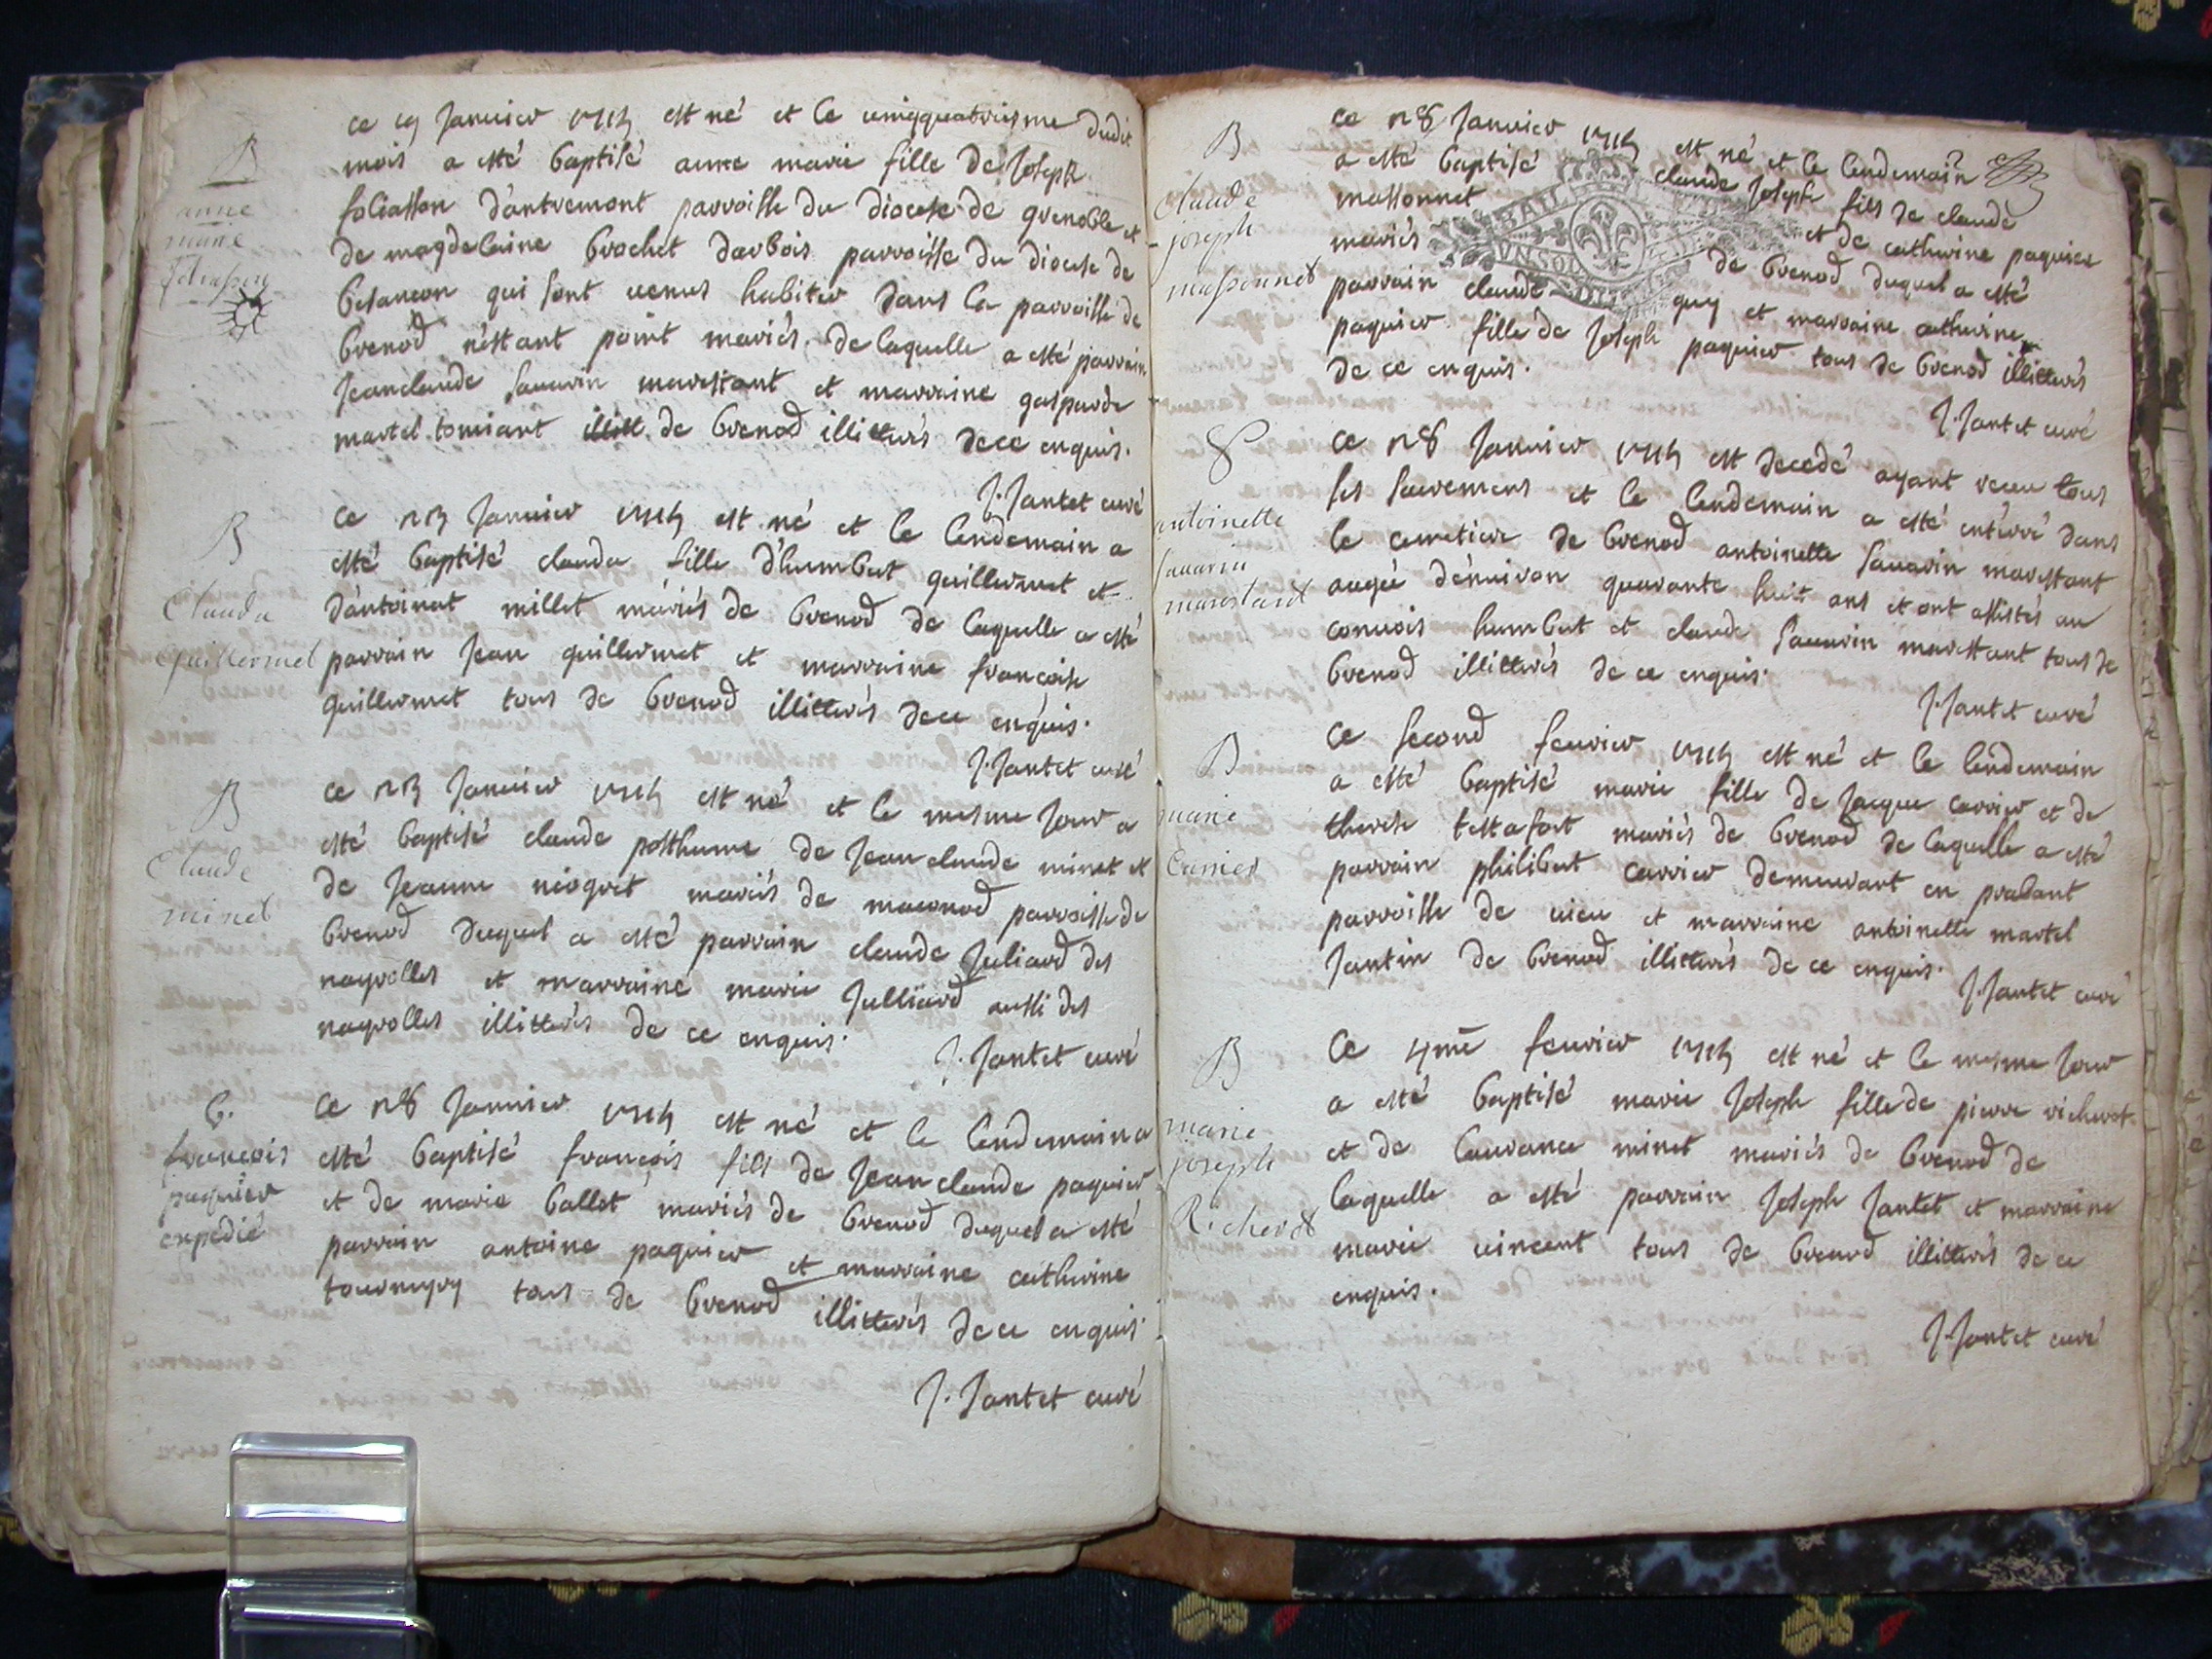 B
anne
marie
ce 19 Janvier 1715 est né et le vingquatriesme dudit
mois a esté baptisé anne marie fille de Joseph
foliasson d'antremont parroisse du diocese de grenoble et
de magdelaine brochet darbois parroisse du diocese de
besancon qui sont venus habiter dans la parroisse de
brenod n'estant point mariés. de laquelle a esté parrain
Jeanclaude savarin marestant et marraine gasparde
martel tomiant de brenod illitterés de ce enquis.
J. Jantet curé
B
Clauda
Guillermet
ce 23 Janvier 1715 est né et le lendemain a
esté baptisé clauda fille d'humbert guillermet et
d'antoinat millet mariés de brenod de laquelle a esté
parrain Jean guillermet et marraine francoise
guillermet tous de brenod illitterés de ce enquis.
J. Jantet curé
B
Claude
minet
ce 23 Janvier 1715 est né et le mesme Jour a
esté baptisé claude posthume de Jean claude minet et
de Jeanne niogret mariés de maconod parroisse de
brenod duquel a esté parrain claude Juliard des
nayrolles et marraine marie Julliard aussi des
nayrolles illitterés de ce enquis.
J. Jantet curé
b.
francois
paquier
expedié
ce 28 Janvier 1715 est né et le lendemain a
esté baptisé francois fils de Jean claude paquier
et de marie ballet mariés de brenod duquel a esté
parrain antoine paquier et marraine catherine
tous de brenod illitterés de ce enquis.
J. Jantet curé
B
Claude
joseph
massonnet
ce 28 Janvier 1715 est né et le lendemain
a esté baptisé claude Joseph fils de claude
massonnet et de catherine paquier
mariés de brenod duquel a esté
parrain claude guy et marraine catherine
paquier fille de Joseph paquier tous de brenod illitterés
de ce enquis.
J. Jantet curé
BAIL
VN SOL
antoinette
savarin
marestant
ce 28 Janvier 1715 est decedé ayant receu tous
ses sacremens et le lendemain a esté enterré dans
le cemetiere de brenod antoinette savarin marestant
aagée d'environ quarante huit ans et ont assistés au
convois humbert et claude savarin marestant tous de
brenod illitterés de ce enquis.
J. Jantet curé
B
marie
Carrier
ce second fevrier 1715 est né et le lendemain
a esté baptisé marie fille de Jacque carrier et de
therese testafort mariés de brenod de laquelle a esté
parrain philibert carrier demeurant en pralant
parroisse de vieu et marraine antoinette martel
Jantin de brenod illitterés de ce enquis.
J. Jantet curé
B
marie
joseph
Richerot
ce 4me fevrier 1715 est né et le mesme Jour
a esté baptisé marie Joseph fille de pierre richerot
et de laurance minet mariés de brenod de
laquelle a esté parrain Joseph Jantet et marraine
marie vincent tous de brenod illitterés de ce
enquis.
J. Jantet curé